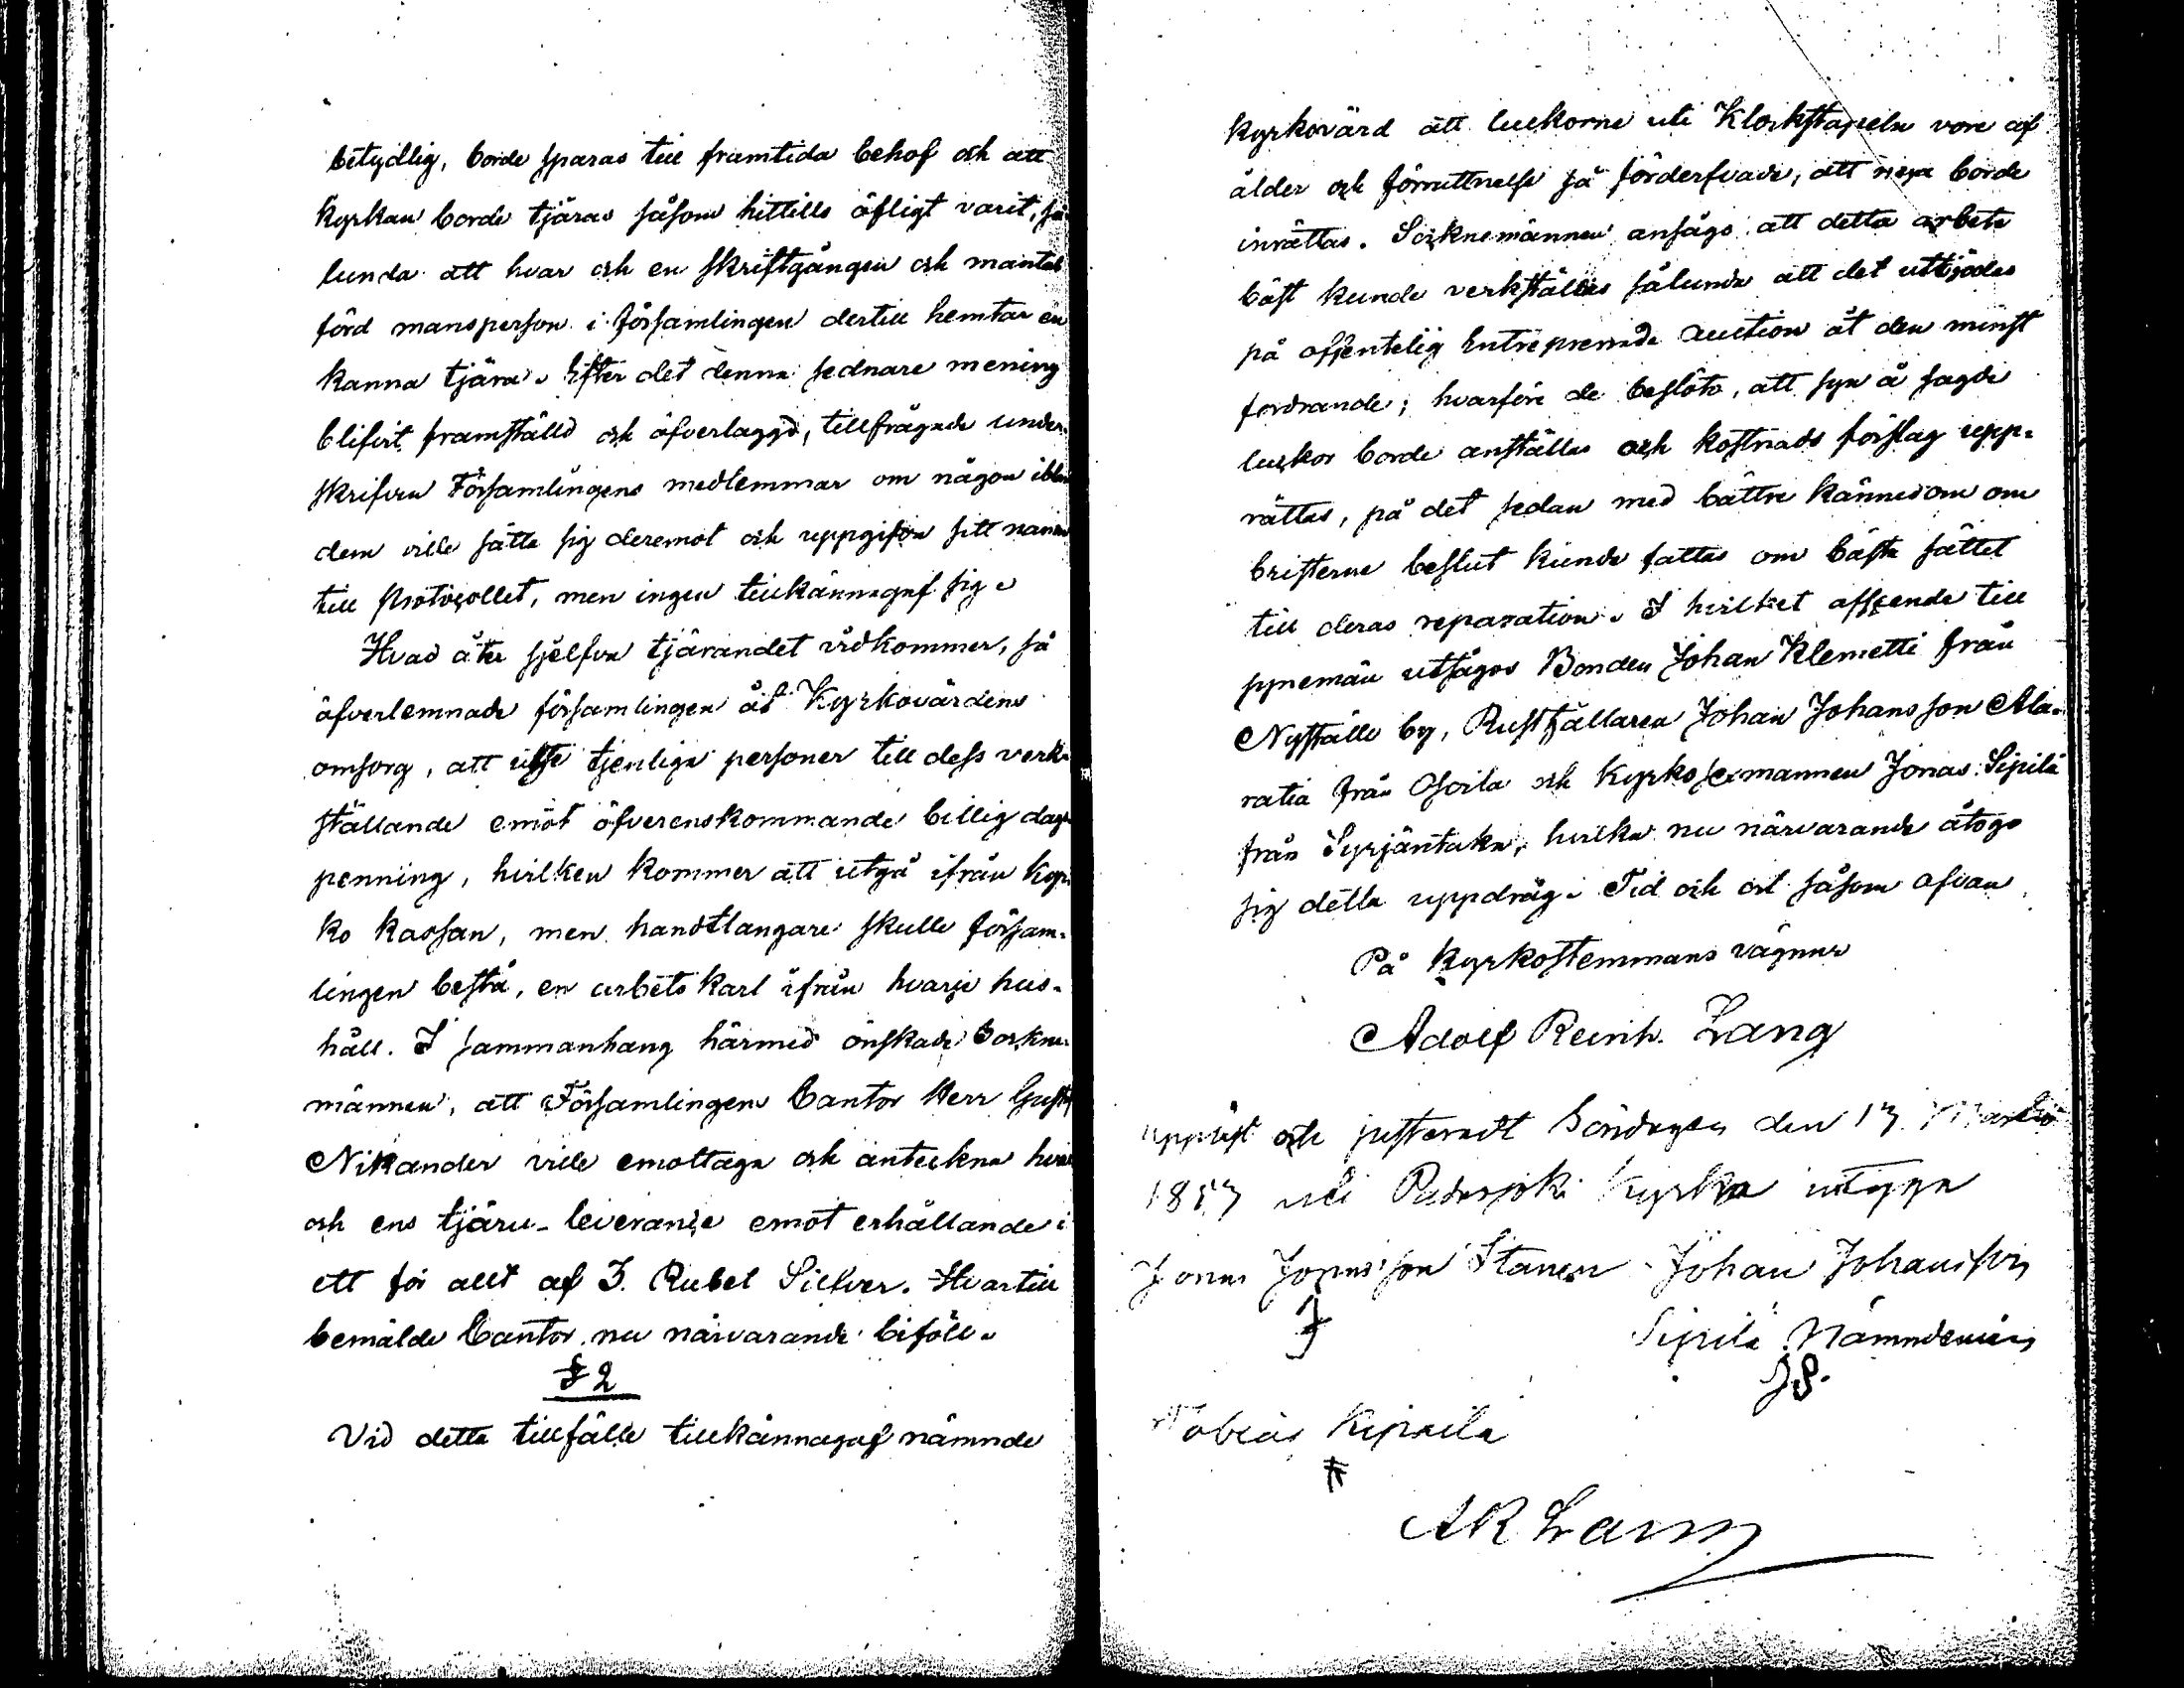 betydlig, borde sparas till framtida behof och att
Kyrkan borde tjäras såsom hittills öfligt varit, så
lunda att hvar och en skriftgången och mantals
förd mansperson i församlingen dertill hemtar en
kanna tjära. Efter det denna sednare mening
blifvit framställd och öfverlaggd, tillfrågade under-
skrifven Församlingens medlemmar om någon ibland
dem ville sätta sig deremot och uppgifva sitt namn
till Protocollet, men ingen tillkännagaf sig.
Hvad åter sjelfva tjärandet vidkommer, så
öfverlemnade församlingen åt Kyrkovärdens
omsorg, att utse tjenliga personer till dess verk-
ställande emot öfverenskommande billig dags
penning, hvilken kommer att utgå ifrån Kyr-
ko kassan, men handtlangare skulle försam-
lingen bestå, en arbetskarl ifrån hvarje hus-
håll. I sammanhang härmed önskade Sockne-
männen, att Församlingens Cantor Herr Gustaf
Nikander ville emottaga och anteckna hvars
och ens tjäru-leverance emot erhållande i
ett för allt af 3. Rubel Silfver. Hvartill
bemälde Cantor nu närvarande biföll.
§ 2
Vid detta tillfälle tillkännagaf nämnde
Kyrkovärd att luckorne uti Klockstapeln vore af
ålder och förruttnelse så förderfvade, att nya borde
inrättas. Socknemännen ansågo att detta arbete
bäst kunde verkställas sålunda att det utbjödes
på offentelig Entreprenade auction åt den minst
fordrande; hvarföre de beslöto, att syn å sagde
luckor borde anställas och kostnads förslag upp-
rättas, på det sedan med bättre kännedom om
bristerne beslut kunde fattas om bästa sättet
till deras reparation. I hvilket afseende till
synemän utsågos Bonden Johan Klemetti från
Nystölä by, Rusthållaren Johan Johansson Ala-
ratia från Osoila och Kyrko sexmannen Jonas Sipilä
från Syrjäntaka, hvilka nu närvarande åtogo
sig detta uppdrag. Tid och ort såsom ofvan
På Kyrkostemmans vägnar
Adolf Reinh. Lang
Uppläst och justeradt Söndagen den 1
18 uti Padasjoki Kyrka intyga
Jonas Jonasson Johan Johansson
Sipilä Nämndeman
J S.
Tobias
A R Lang